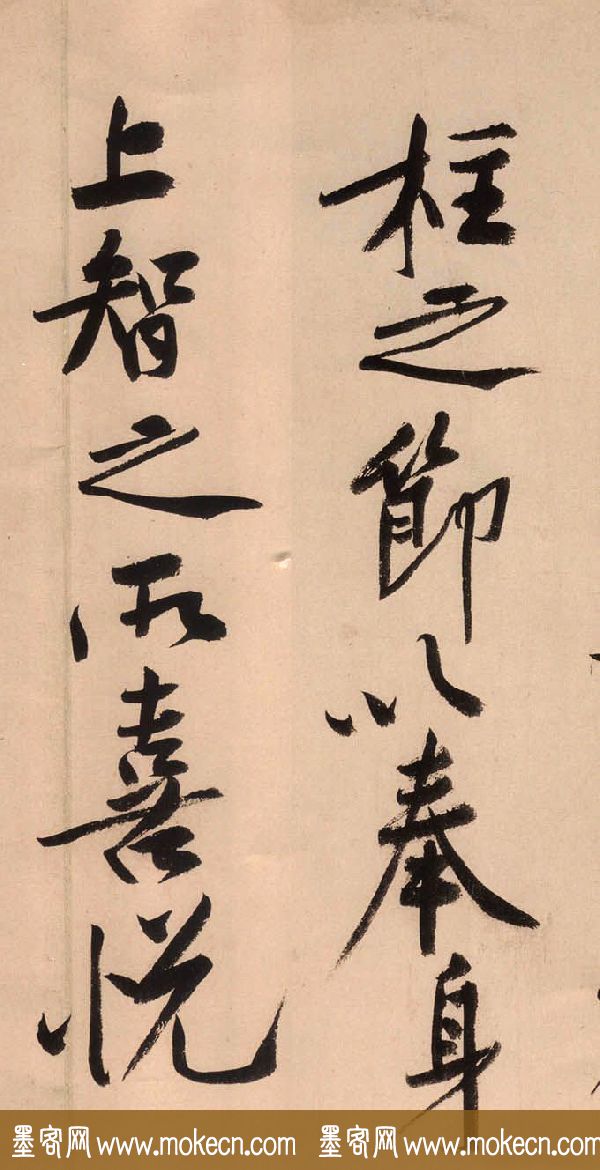 柱之節以奉身
上智之所喜悦
墨客网 www.mokecn.com 墨客网 www.mokecn.com